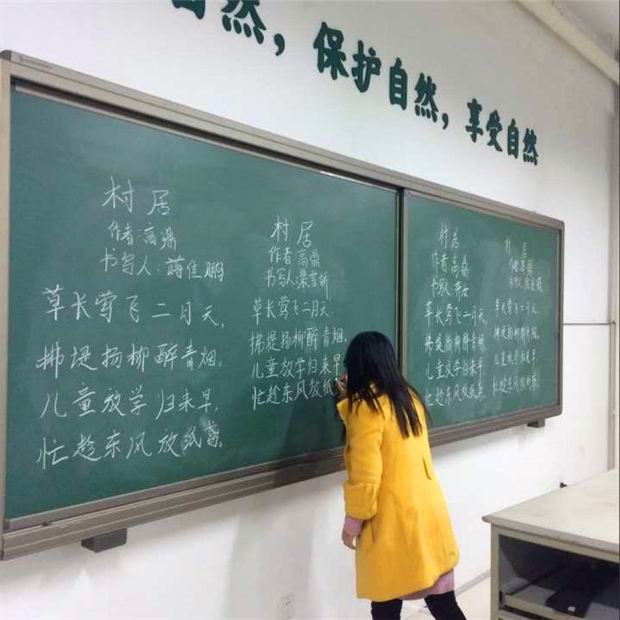 自然，保护自然，享受自然
村居
作者:高鼎
书写人:蒋佳鹏
草长莺飞二月天，
拂堤扬柳醉青烟。
儿童放学归来早，
忙趁东风放纸鸢。
村居
作者:高鼎
书写人:
草长莺飞二月天，
拂堤扬柳醉青烟。
儿童放学归来早，
忙趁东风放纸
村居
作者:高鼎
书写人:
草长莺飞二月天，
拂堤杨柳醉青烟。
儿童放学归来早，
忙趁东风放纸鸢。
村居
作者:高鼎
草长莺飞二月天，
拂堤杨柳醉青烟。
儿童放学归来早，
忙趁东风放纸鸢。